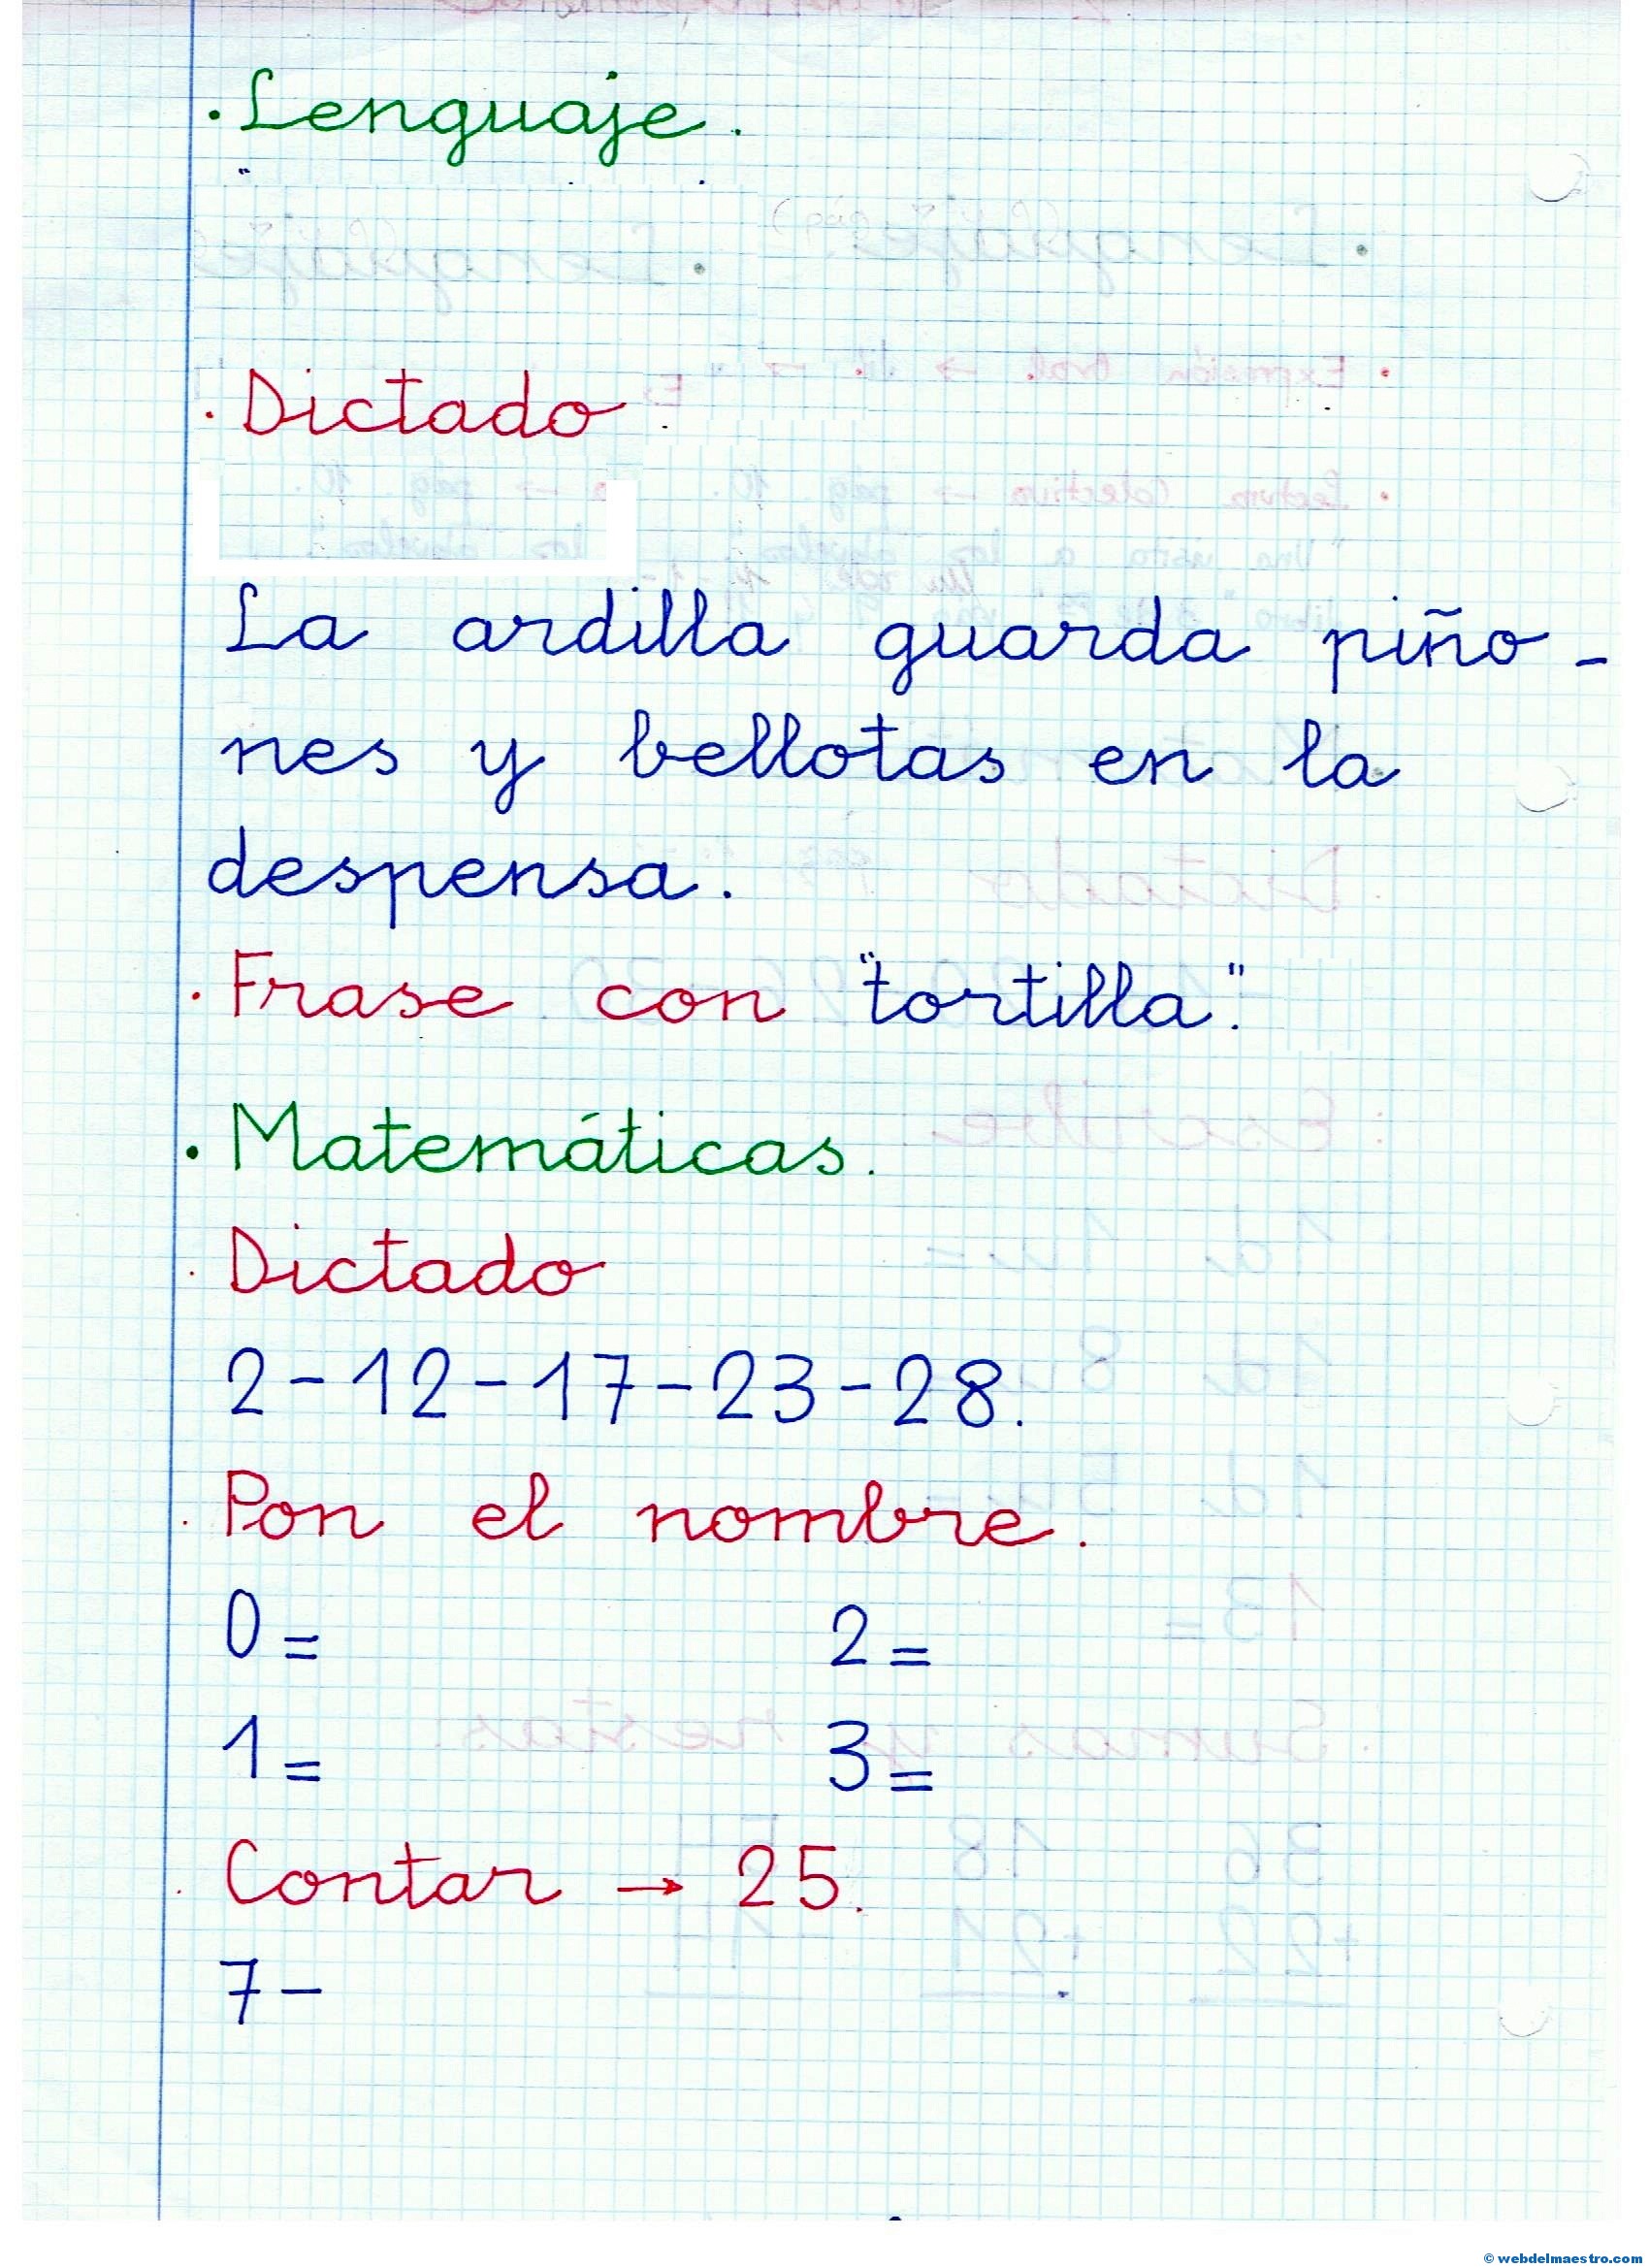 . Lenguaje.
. Dictado
La ardilla guarda piño-
nes y bellotas en la
despensa.
. Frase con "tortilla".
. Matemáticas.
. Dictado
2-12-17-23-28.
. Pon el nombre.
0= 2=
1= 3=
. Contar → 25.
7-
© webdelmaestro.com